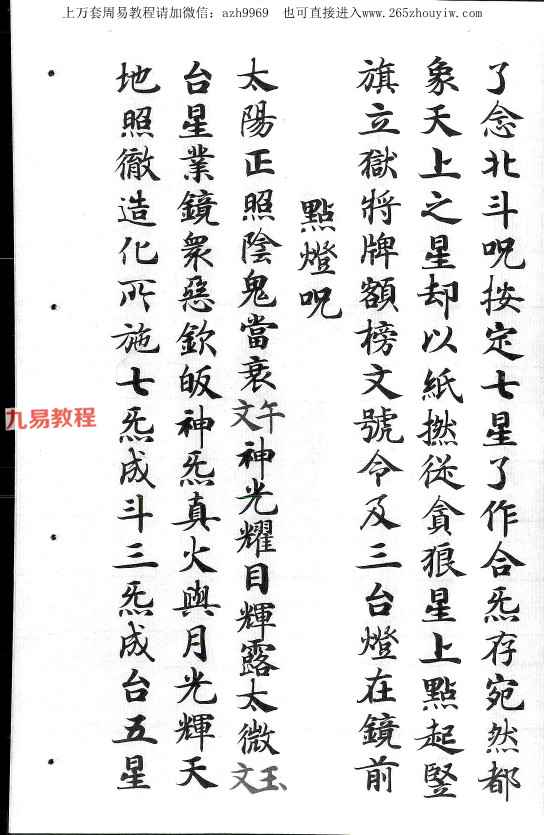 上万套周易教程请加微信：azh9969 也可直接进入www.265zhouyiw.com
了念北斗呪按定七星了作合炁存宛然都
象天上之星却以紙撚從貪狼星上點起竪
旗立獄將牌額榜文號令及三台燈在鏡前
點燈呪
太陽正照陰鬼當衰午文神光耀目輝露太微玉文
台星業鏡衆惡欽皈神炁真火與月光輝天
地照徹造化所施七炁成斗三炁成台五星
九易教程